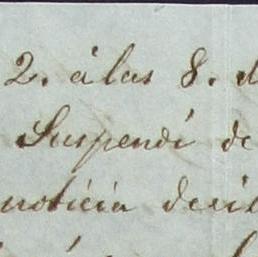 2. á las 8. d
Suspendi de
noticia decil